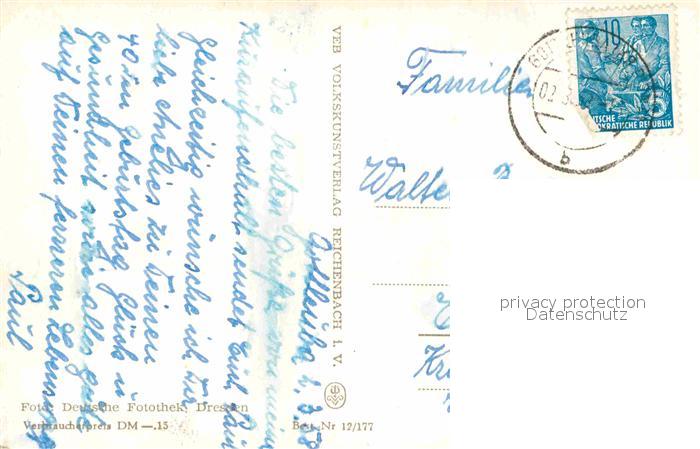 Gottleuba 2.3.58
Die besten Grüße von meinem
Kuraufenthalt sendet Euch Paul
Gleichzeitig wünsche ich Dir
liebe zu Deinem
40ten Geburtstag Glück u
Gesundheit sowie alles gute
auf Deinem ferneren Lebensweg
Paul
Foto: Deutsche Fotothek, Dresden
Verbraucherpreis DM —.15
Best.-Nr 12/177
VEB VOLKSKUNSTVERLAG REICHENBACH i. V.
Familie
Walter
10
DEUTSCHE
DEMOKRATISCHE REPUBLIK
b
privacy protection
Datenschutz